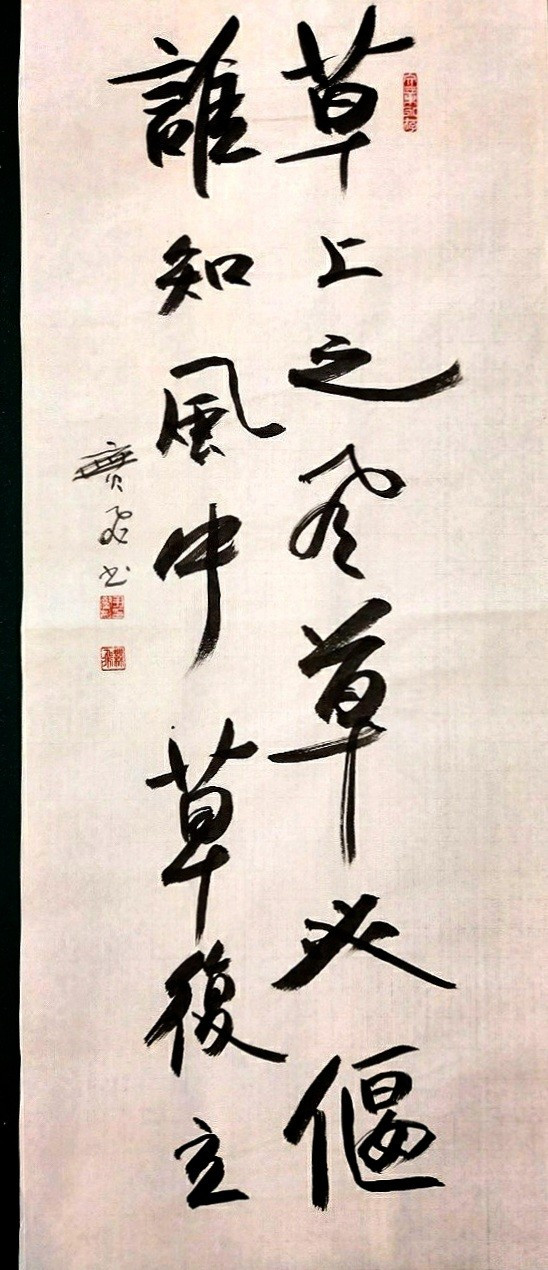 草上之風草必偃
誰知風中草復立